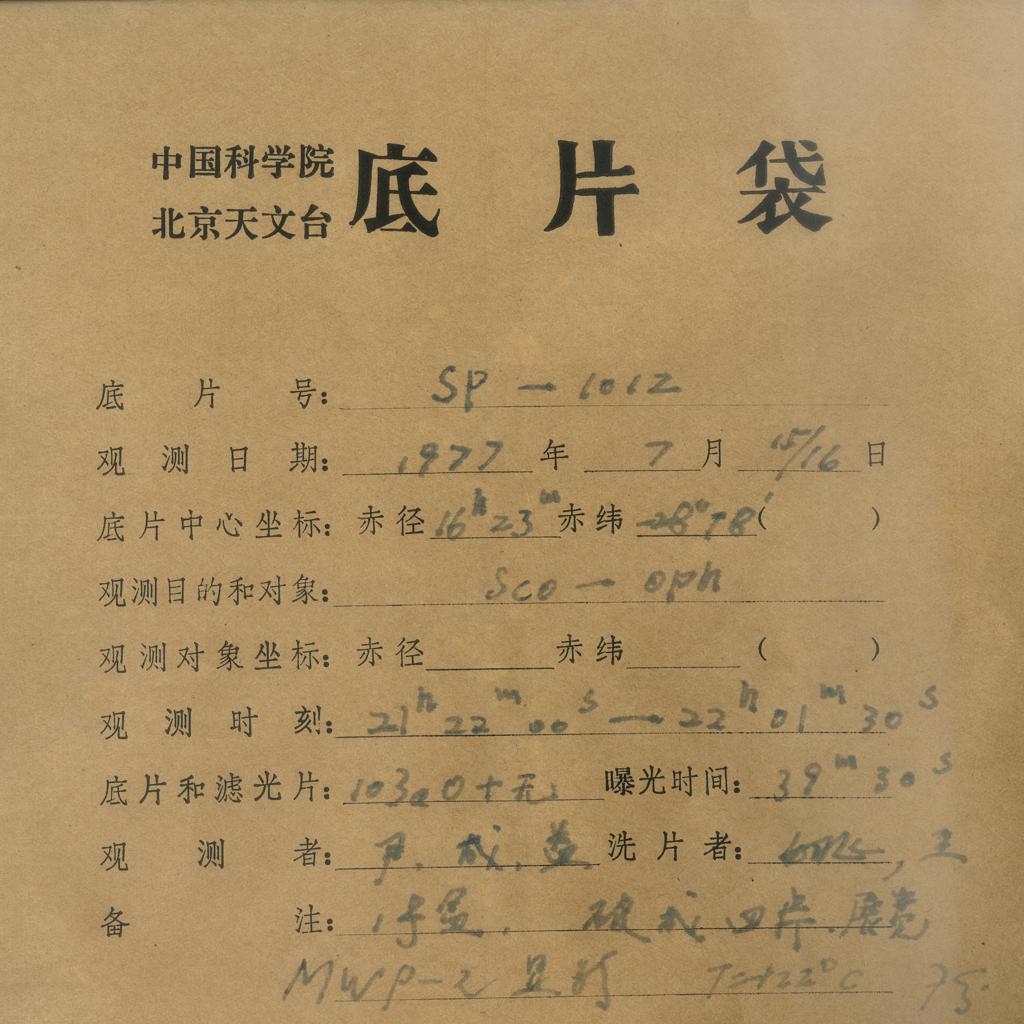 中国科学院
北京天文台
底片袋
底片号: SP — 1012
观测日期: 1977 年 7 月 15/16 日
底片中心坐标: 赤径 16h23m 赤纬 ( )
观测目的和对象: Sco — oph
观测对象坐标: 赤径 赤纬 ( )
观测时刻: 21h 22m 00s — 22h 01m 30s
底片和滤光片: 103aO+无 曝光时间: 39m 30s
观测者: 尹.成.益 洗片者: 王
备注: 破成四片.展览
MWP-2 显影 T=+22°C